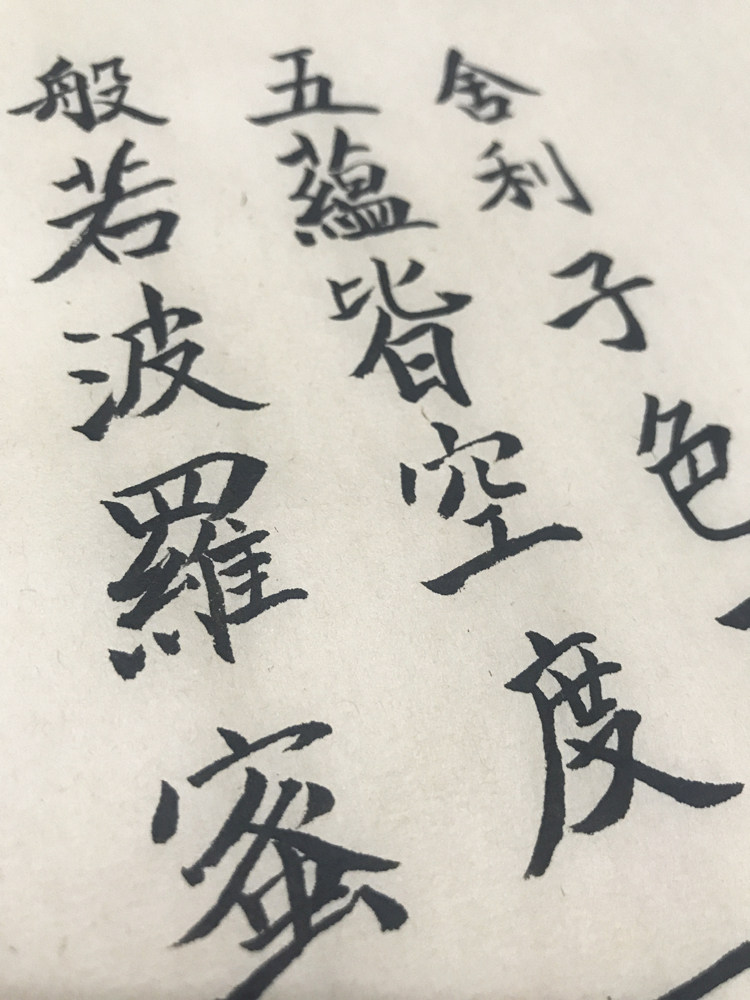 般若波羅蜜
五蘊皆空度
舍利子色